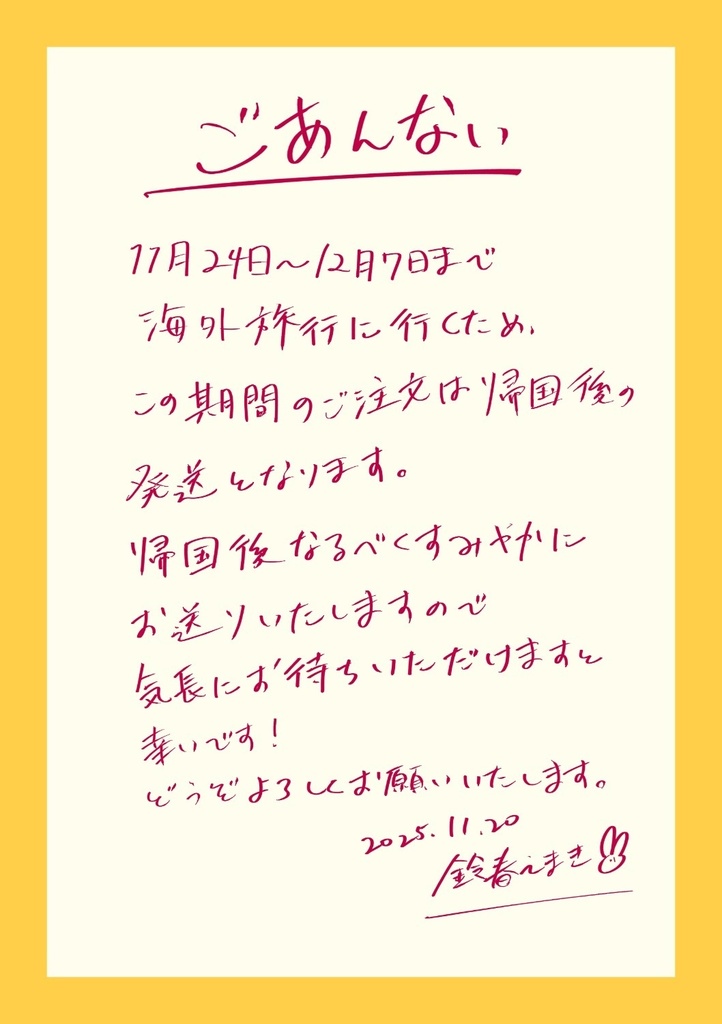 ごあんない
11月24日〜12月7日まで
海外旅行に行くため、
この期間のご注文は帰国後の
発送となります。
帰国後なるべくすみやかに
お送りいたしますので
気長にお待ちいただけますと
幸いです!
どうぞよろしくお願いいたします。
2025.11.20
鈴春えまき